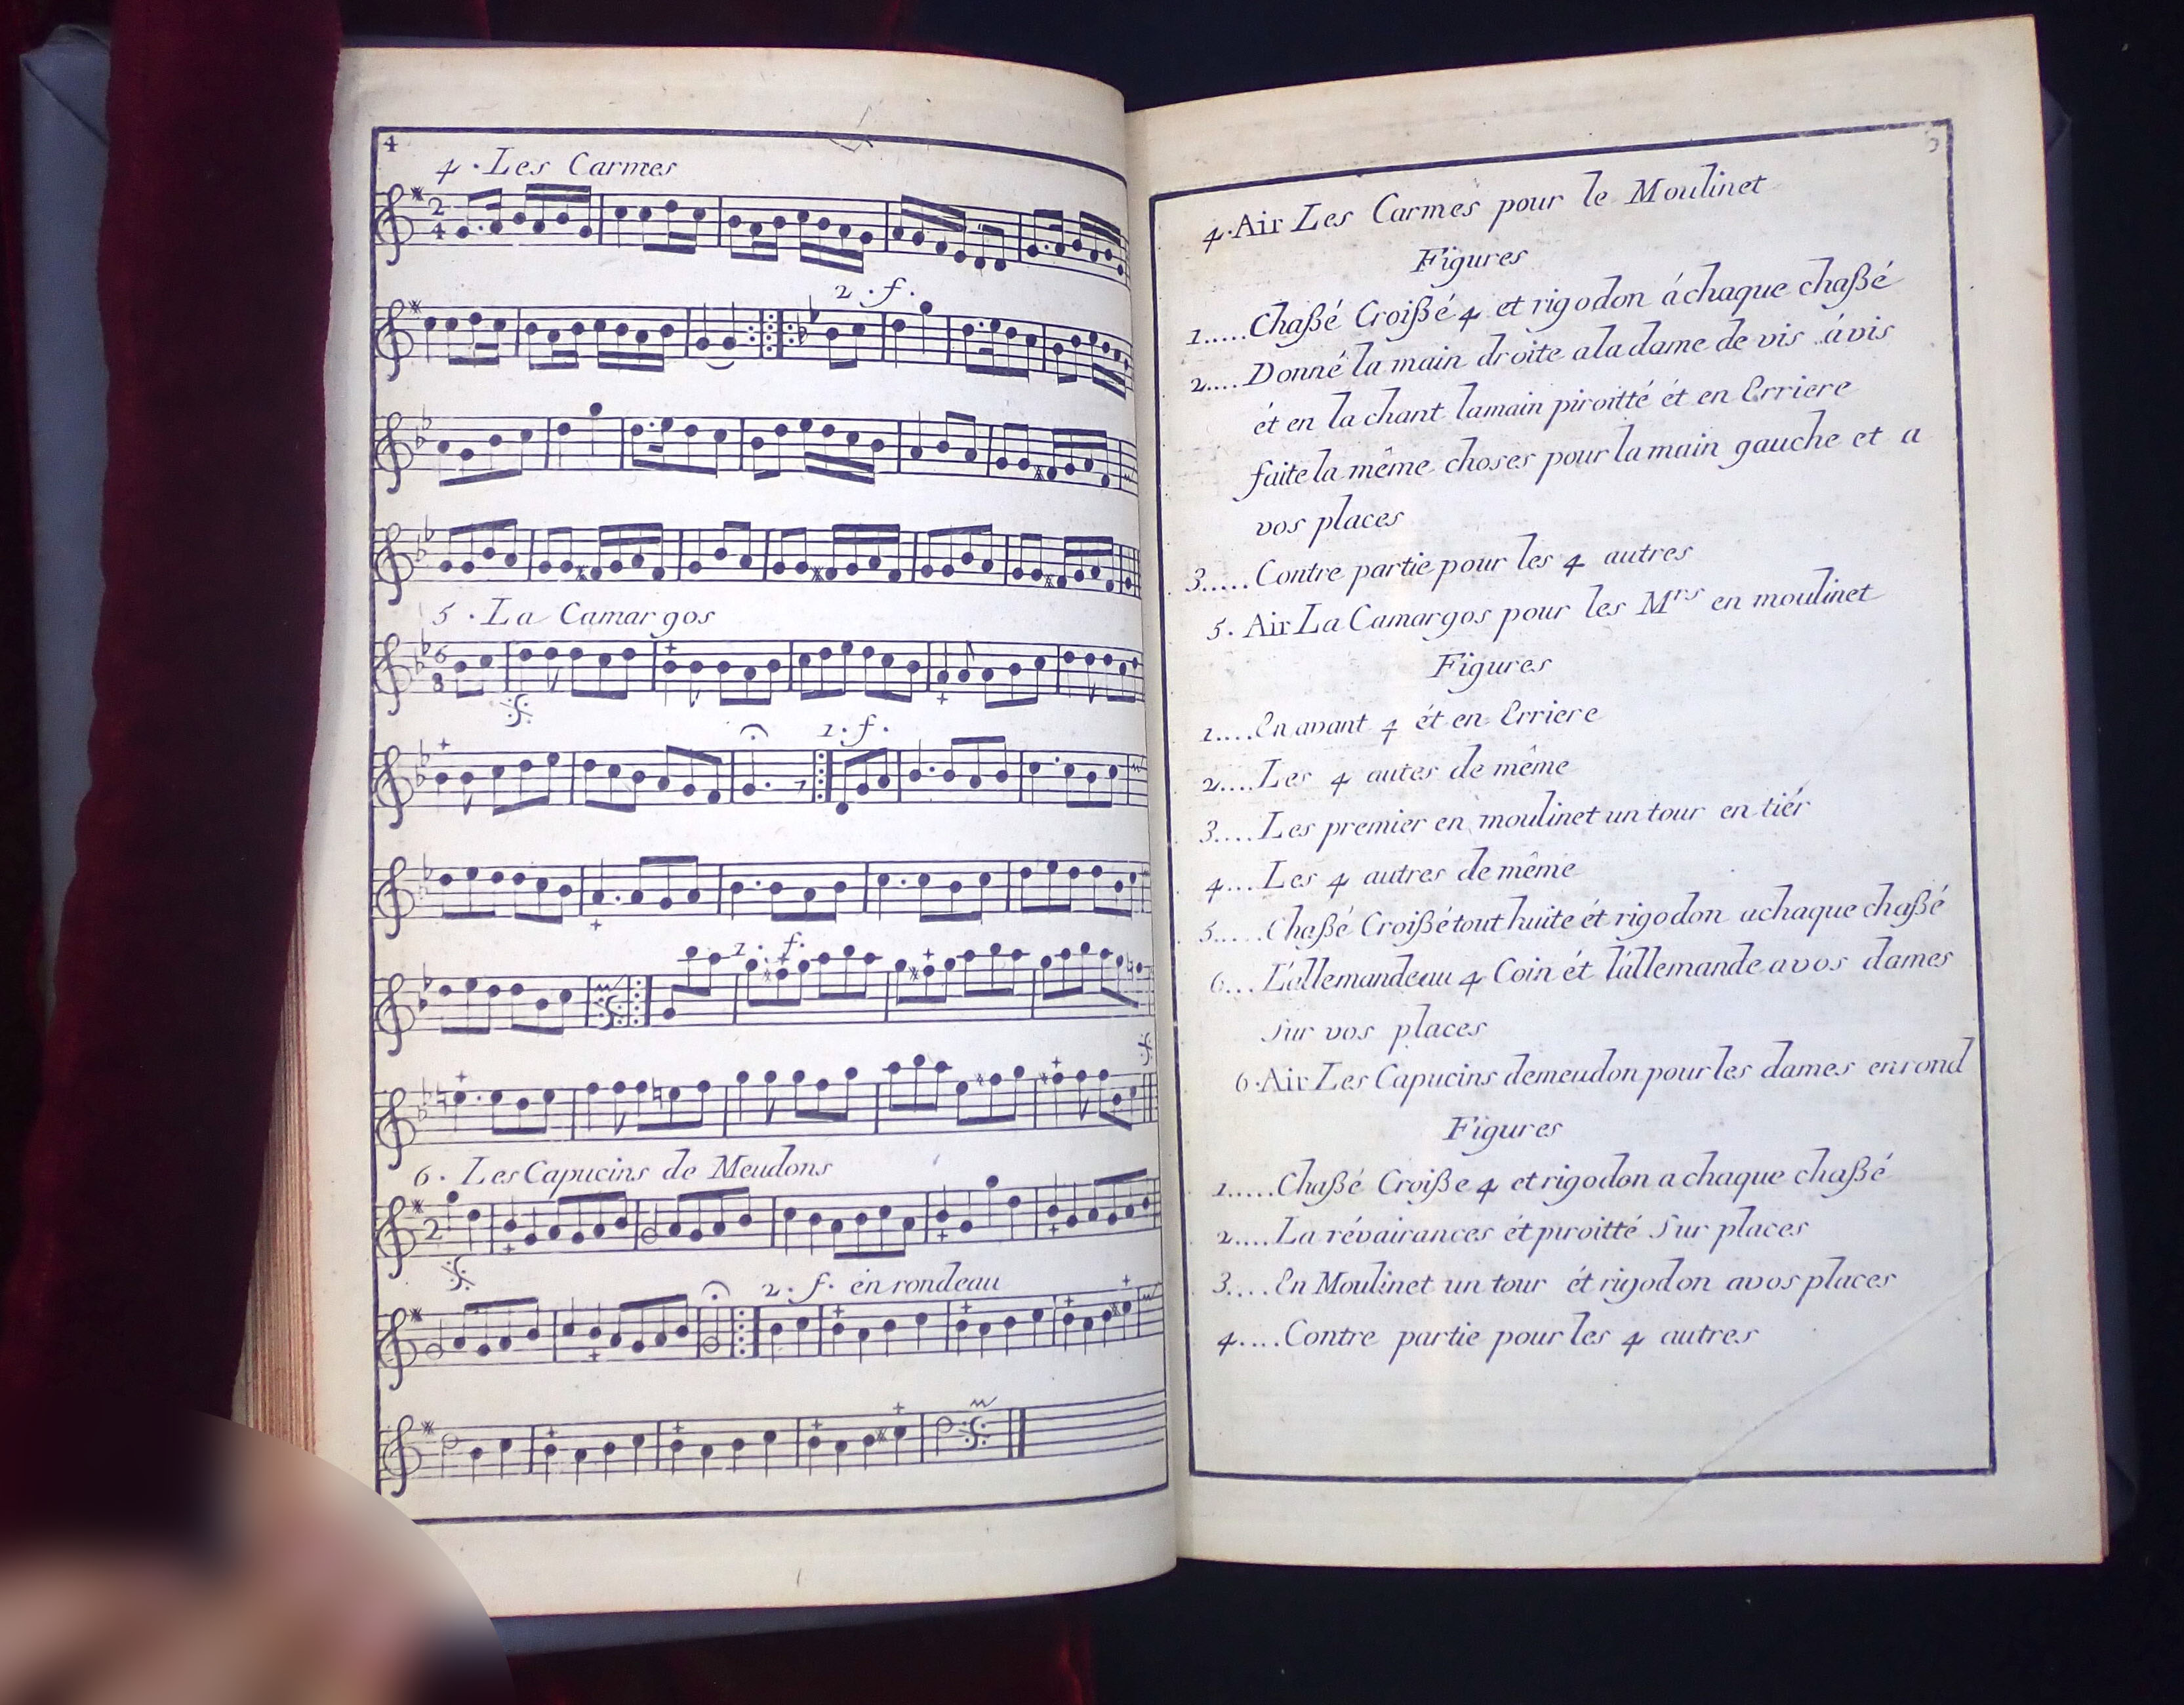 4
4 · Les Carmes
2 . f .
5 . La Camargos
1 . f .
1 . f .
6 . Les Capucins de Meudons
2 . f . en rondeau
5
4. Air Les Carmes pour le Moulinet
Figures
1..... Chaßé Croißé 4 et rigodon á chaque chaßé
2.... Donné la main droite a la dame de vis á vis
ét en la chant la main piroitté ét en Erriere
faite la même choses pour la main gauche et a
vos places
3..... Contre partie pour les 4 autres
5. Air La Camargos pour les Mrs en moulinet
Figures
1.... En avant 4 ét en Erriere
2.... Les 4 autes de même
3.... Les premier en moulinet un tour en tiér
4.... Les 4 autres de même
5..... Chaßé Croißé tout huite ét rigodon a chaque chaßé
6... L'allemande au 4 Coin ét l'allemande a vos dames
Sur vos places
6. Air Les Capucins de meudon pour les dames en rond
Figures
1..... Chaßé Croiße 4 et rigodon a chaque chaßé
2.... La révairances ét piroitté Sur places
3.... En Moulinet un tour ét rigodon a vos places
4.... Contre partie pour les 4 autres